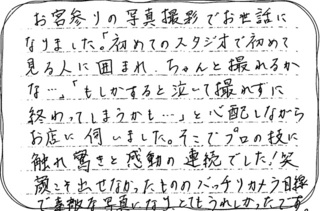 お宮参りの写真撮影でお世話に
なりました。「初めてのスタジオで初めて
見る人に囲まれ、ちゃんと撮れるか
な…。」「もしかすると泣いて撮れずに
終わってしまうかも…」と心配しながら
お店に伺いました。そこでプロの技に
触れ驚きと感動の連続でした!笑
顔こそ出せなかったもののバッチリカメラ目線
で素敵な写真になりとてもうれしかったです。